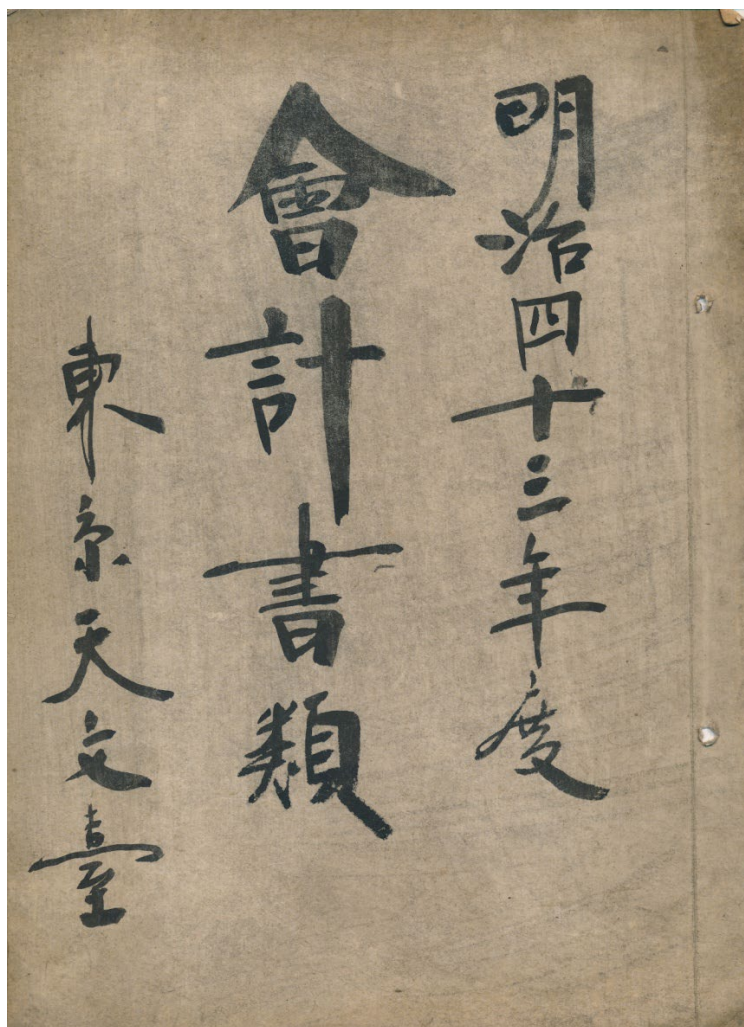 明治四十三年度
會計書類
東京天文臺